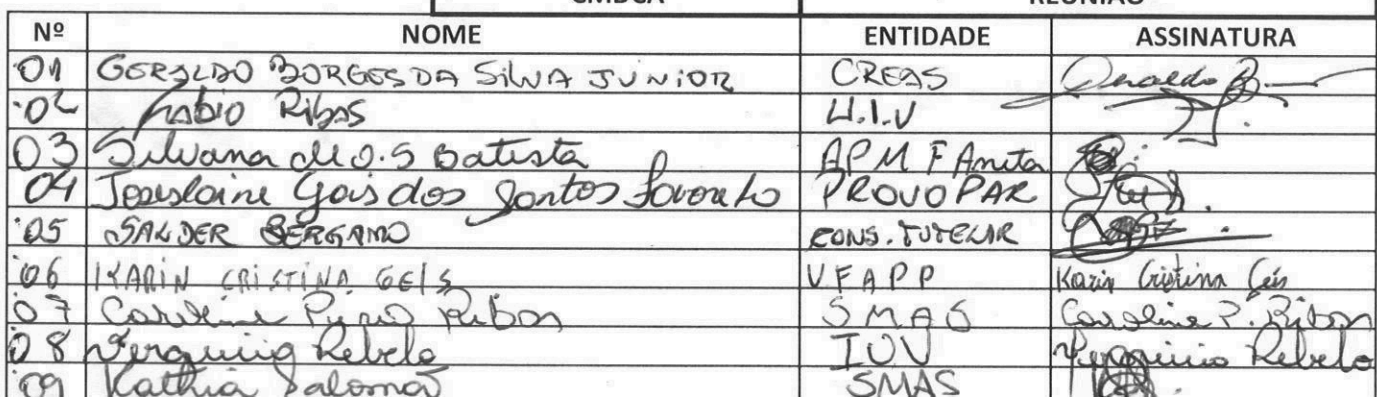 CMDCA REUNIÃO
Nº NOME ENTIDADE ASSINATURA
01 GERALDO BORGES DA SILVA JUNIOR CREAS Geraldo B.
02 Fabio Ribas U.I.V
03 Silvana de O.S Batista APMF Anita
04 Joseslaine Gois dos Santos PROVOPAR
05 SALDER BERGAMO CONS. TUTELAR
06 KARIN CRISTINA GEIS VFAPP Karin Cristina Geis
07 Caroline Ribas SMAS Caroline P. Ribas
08 Verginio Rebelo IUV Verginio Rebelo
09 Kathia Salomão SMAS